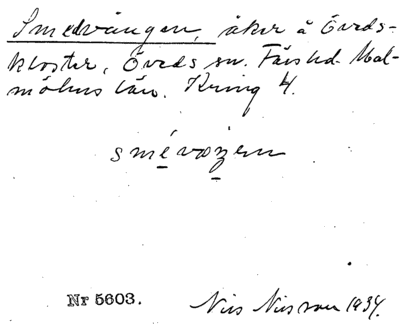 Smedvången, åker å Öveds-
kloster, Öveds sn. Färs hd. Mal-
möhus län. Kring 4.
smévɑŋen
Nr 5603.
Nils Nilsson 1934.